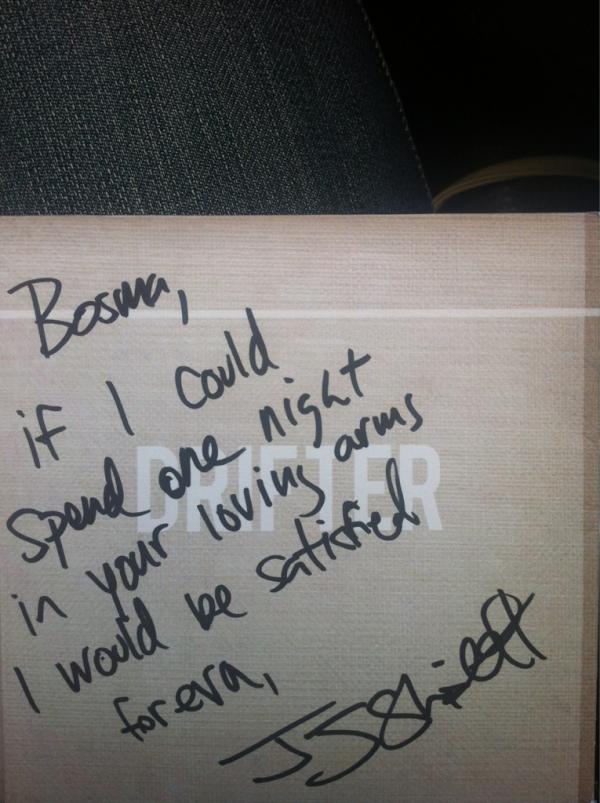 Bosma,
if I could
spend one night
DRIFTER
in your loving arms
I would be satisfied
foreva,
JJ